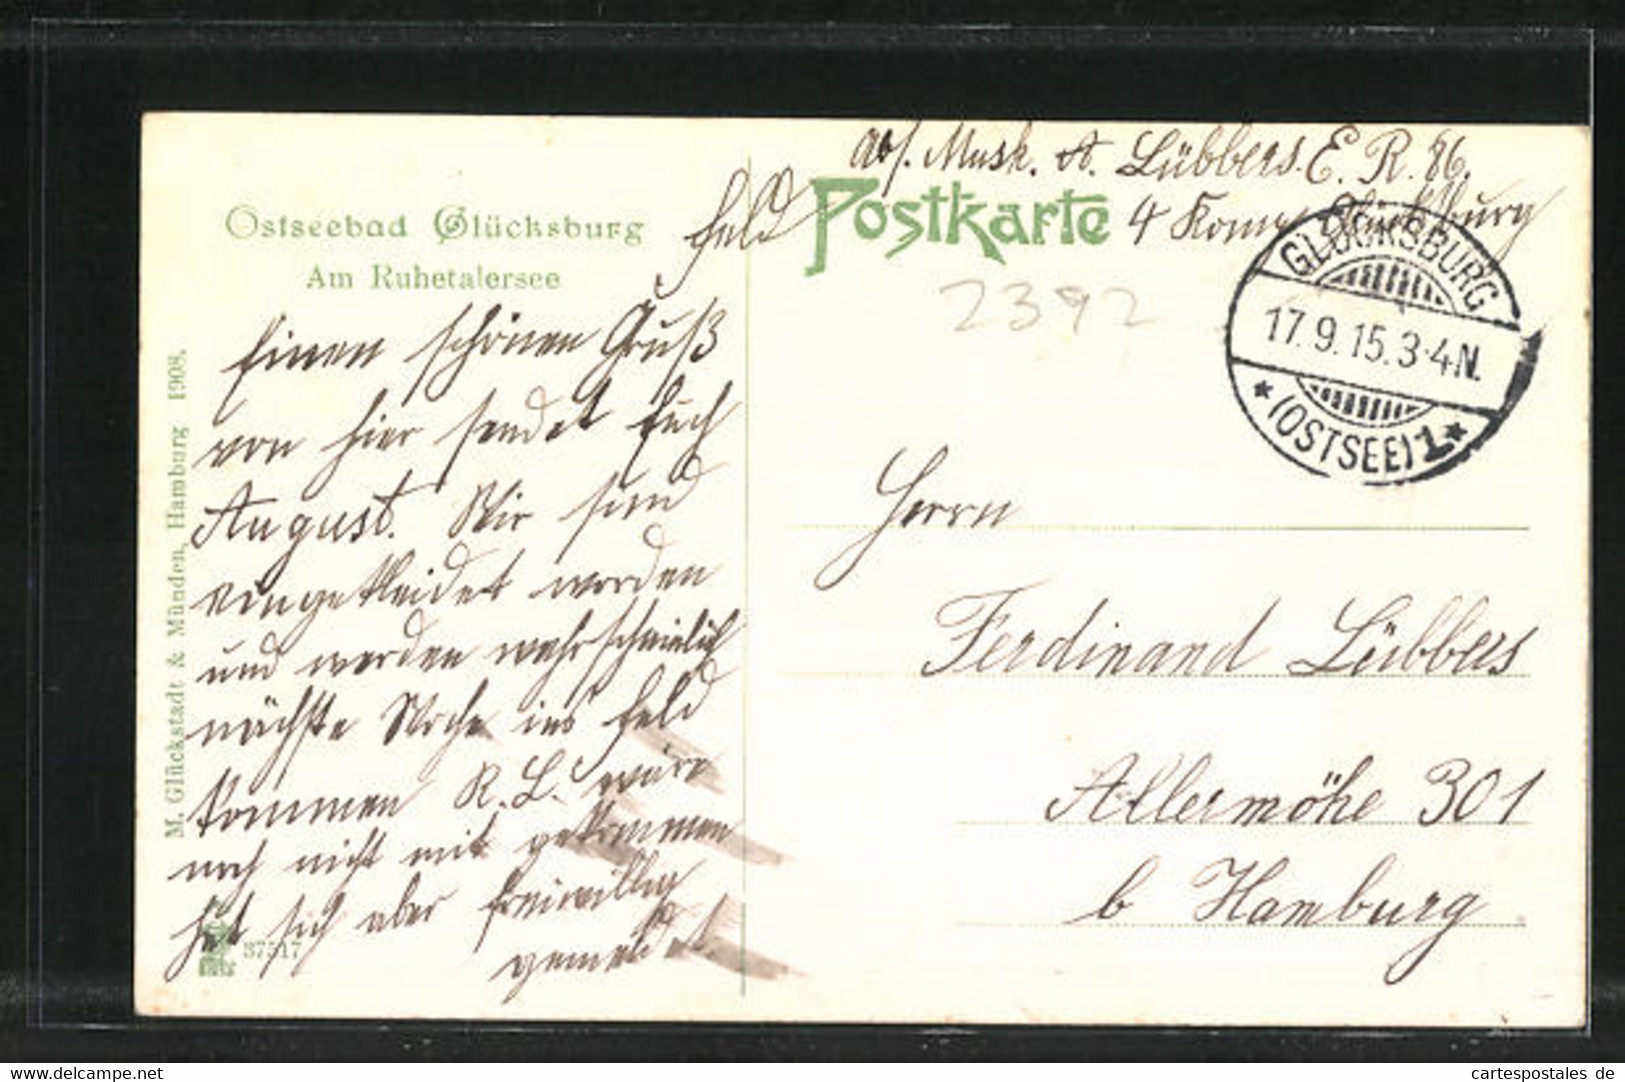 Abs. Musk. A. Lübbers. E. R. 86.
4 Komp. Glücksburg
Feld Postkarte
Ostseebad Glücksburg
Am Ruhetalersee
2392
GLÜCKSBURG
17.9.15.3-4N.
* (OSTSEE) 1 *
Einen schönen Gruß
von hier sendet Euch
August. Wir sind
eingekleidet worden
und werden wahrscheinlich
nächste Woche ins Feld
kommen R. L. wäre
noch nicht mit gekommen
hat sich aber freiwillig
gemeldet.
Herrn
Ferdinand Lübbers
Allermöhe 301
b Hamburg
M. Glückstadt & Münden, Hamburg 1908.
37517
www.cartespostales.de
cartespostales de